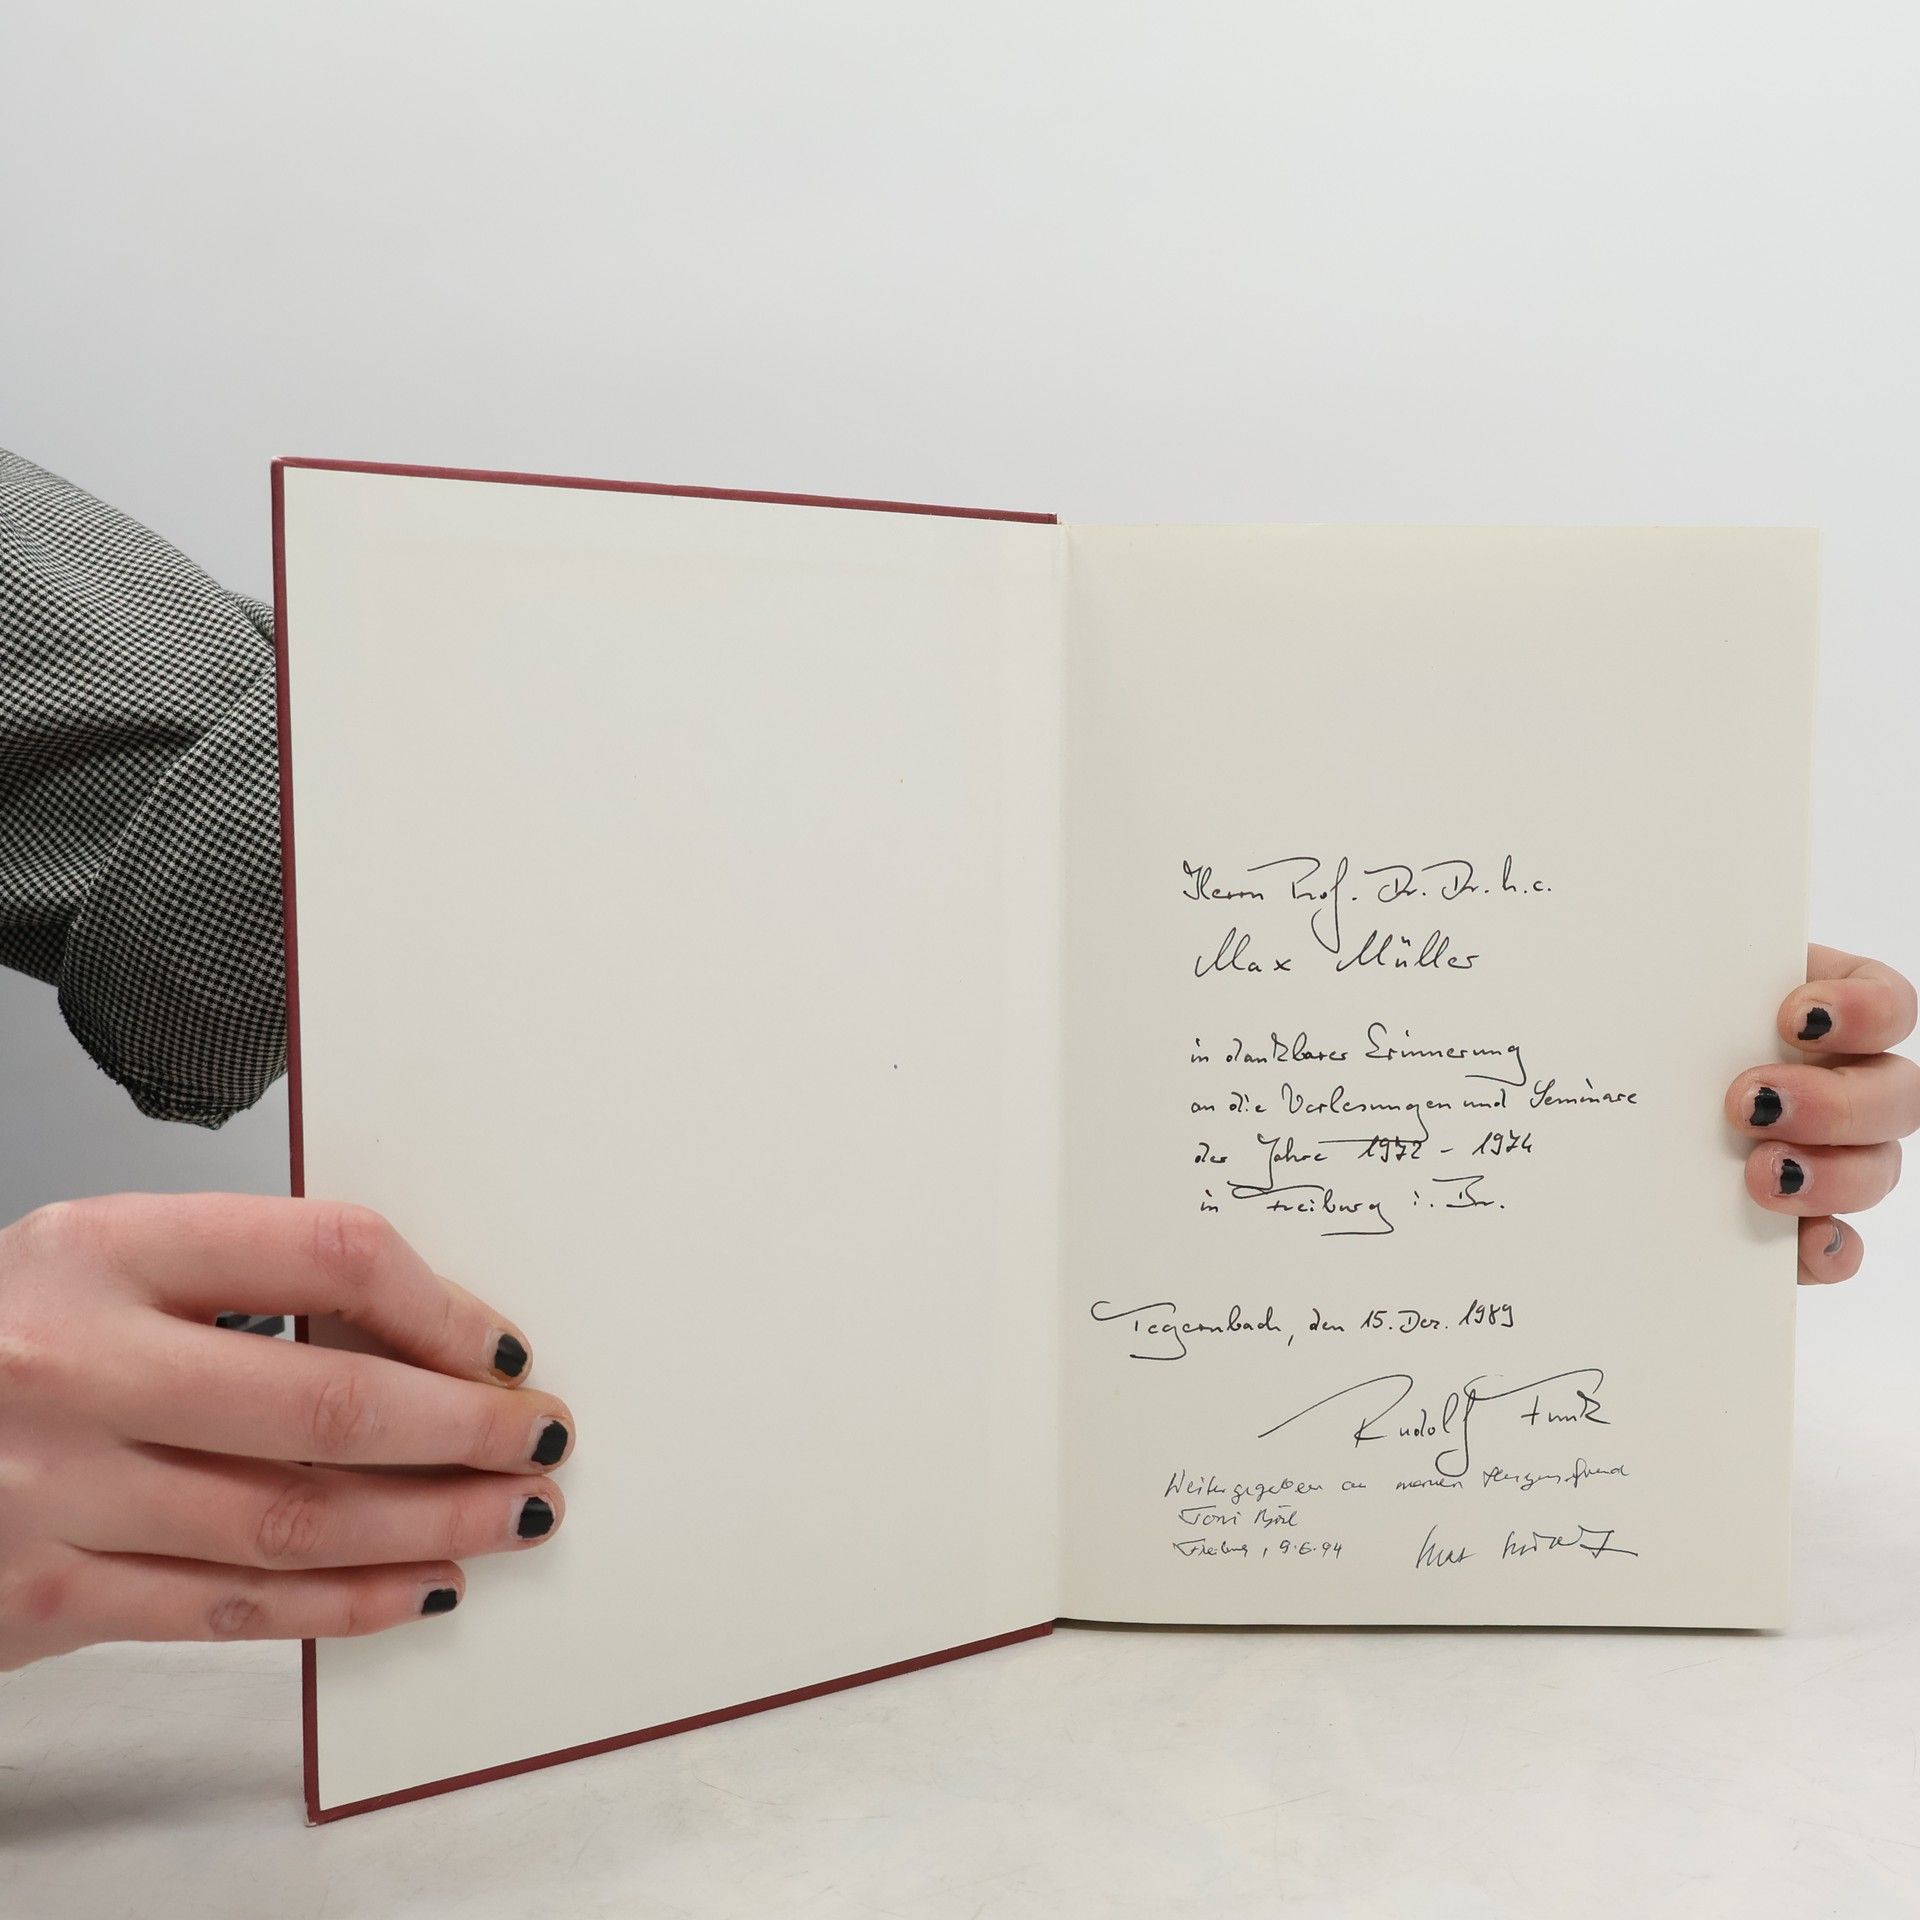 Herrn Prof. Dr. Dr. h.c.
Max Müller
in dankbarer Erinnerung
an die Vorlesungen und Seminare
der Jahre 1972 - 1974
in Freiburg i. Br.
Tegernbach, den 15. Dez. 1989
Rudolf Funk
Weitergegeben an meinen Herzensfreund
Toni
Freiburg, 9.6.94
Max Müller